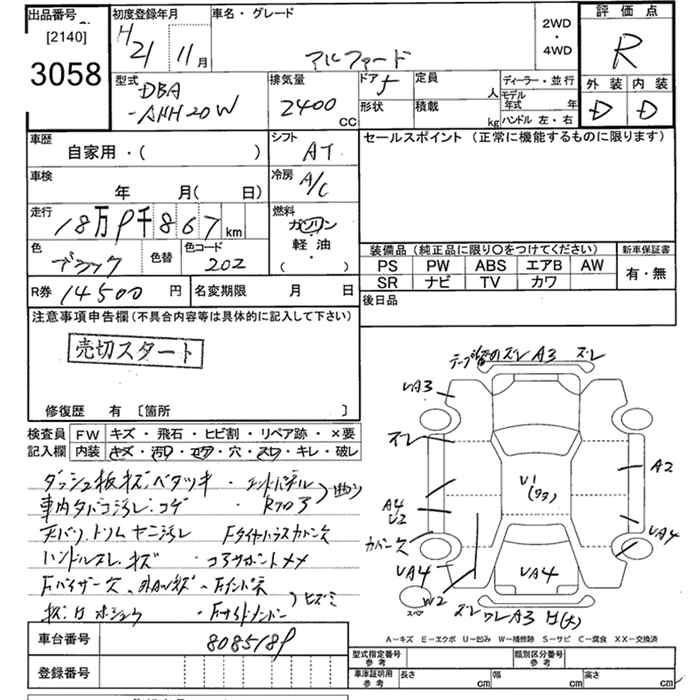 出品番号
[2140]
3058
初度登録年月
H21 11月
車名・グレード
アルファード
2WD
・
4WD
評価点
R
型式
DBA
-ANH20W
排気量
2400
CC
ドア 5
定員
人
形状
積載
kg
ディーラー・並行
モデル
年式 年
ハンドル 左・右
外装 内装
D D
車歴
自家用・( )
シフト
AT
セールスポイント (正常に機能するものに限ります)
車検
年 月( 日)
冷房
A/C
走行
18万9千867km
燃料
ガソリン
軽油・
( ・ )
色
ブラック
色替
色コード
202
装備品(純正品に限り○をつけてください)
PS PW ABS エアB AW
SR ナビ TV カワ
新車保証書
有・無
R券 14500円
名変期限 月 日
後日品
注意事項申告欄(不具合内容等は具体的に記入して下さい)
売切スタート
修復歴 有 〔箇所 〕
検査員 FW キズ・飛石・ヒビ割・リペア跡・×要
記入欄 内装 キズ・汚レ・コゲ・穴・スレ・キレ・破レ
ダッシュ板キズ・ベタツキ
・エンドパネル
車内タバコ汚レ・コゲ
・Rフロア
天バリ、トリム ヤニ汚レ
Fタイヤハウスカバー欠
ハンドルスレ・キズ
・コアサポートメメ
Fバイザー欠
台番号
車台番号
8085189
登録番号
ズレ A3 ズレ
UA3
ズレ
A2
U1
(ワク)
A4
U2
カバー欠
UA4
UA4
UA4
W2
ズレ ワレ A3 H(大)
A-キズ E-エクボ U-凹み W-補修跡 S-サビ C-腐食 XX-交換済
型式指定番号
参考
類別区分番号
参考
車庫証明用
参考
長さ cm 幅 cm 高さ cm